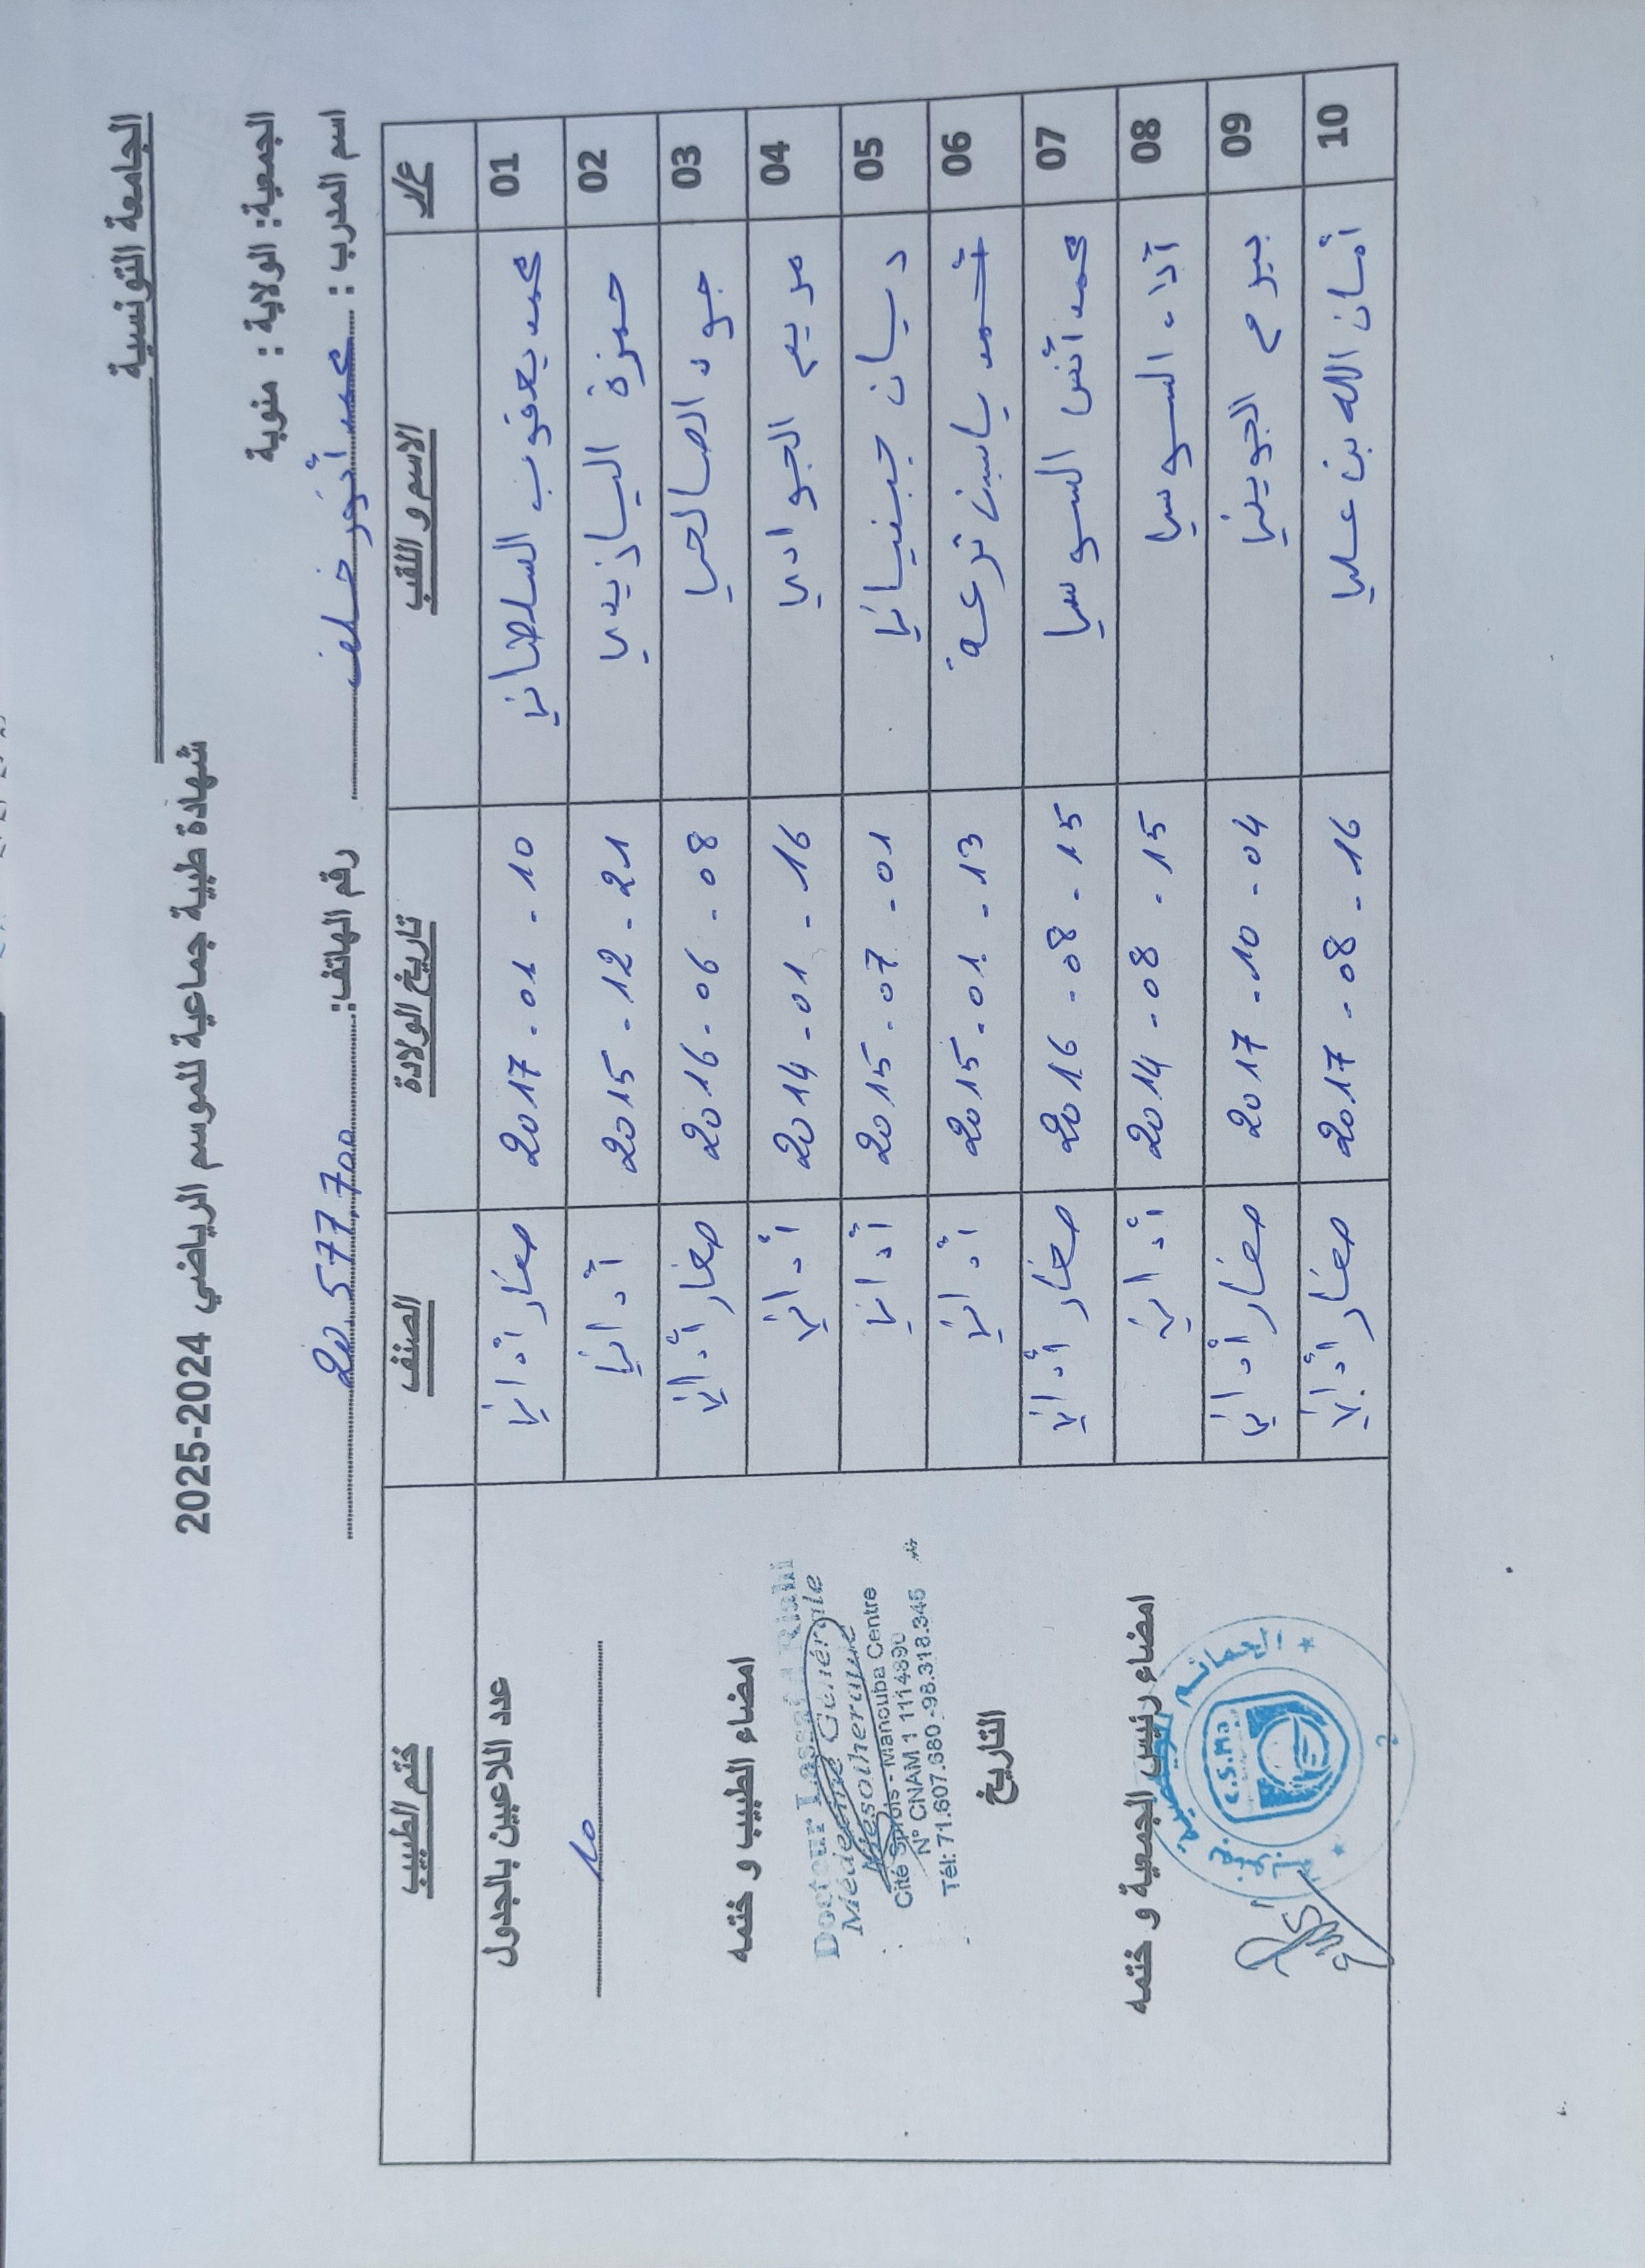 الجامعة التونسية
شهادة طبية جماعية للموسم الرياضي 2024-2025
الجمعية: الولاية : منوبة
اسم المدرب : محمد أنور خلف رقم الهاتف: 20.577.700
ع/ر الاسم و اللقب تاريخ الولادة الصنف ختم الطبيب
01 محمد يعقوب السلطاني 2017-01-10 صغار أداني
02 حمزة اليازيدي 2015-12-21 أداني
03 جود الصالحي 2016-06-08 صغار أداني
04 مريم الجوادي 2014-01-16 أداني
05 ديسان جبنياني 2015-07-01 أداني
06 ياسين ترعة 2015-01-13 أداني
07 محمد أنس السوسي 2016-08-15 صغار أداني
08 آداء السوسي 2014-08-15 أداني
09 بيرم الجويني 2017-10-04 صغار أداني
10 أمان الله بن علي 2017-08-16 صغار أداني
عدد اللاعبين بالجدول
10
امضاء الطبيب و ختمه
Docteur Lassaad Riahi
Médecine Générale
Mésothérapie
Cité Sprols - Manouba Centre
N° CNAM 1 114890
Tél: 71.607.680 - 98.318.345
التاريخ
امضاء رئيس الجمعية و ختمه
C.S.Ma